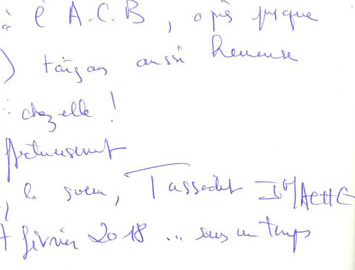 à l'A.C.B, après presque
taizan aussi heureuse
chez elle !
ffectueusement
la soeur, Tassadit IMACHE
février 2018 ... sous un temps